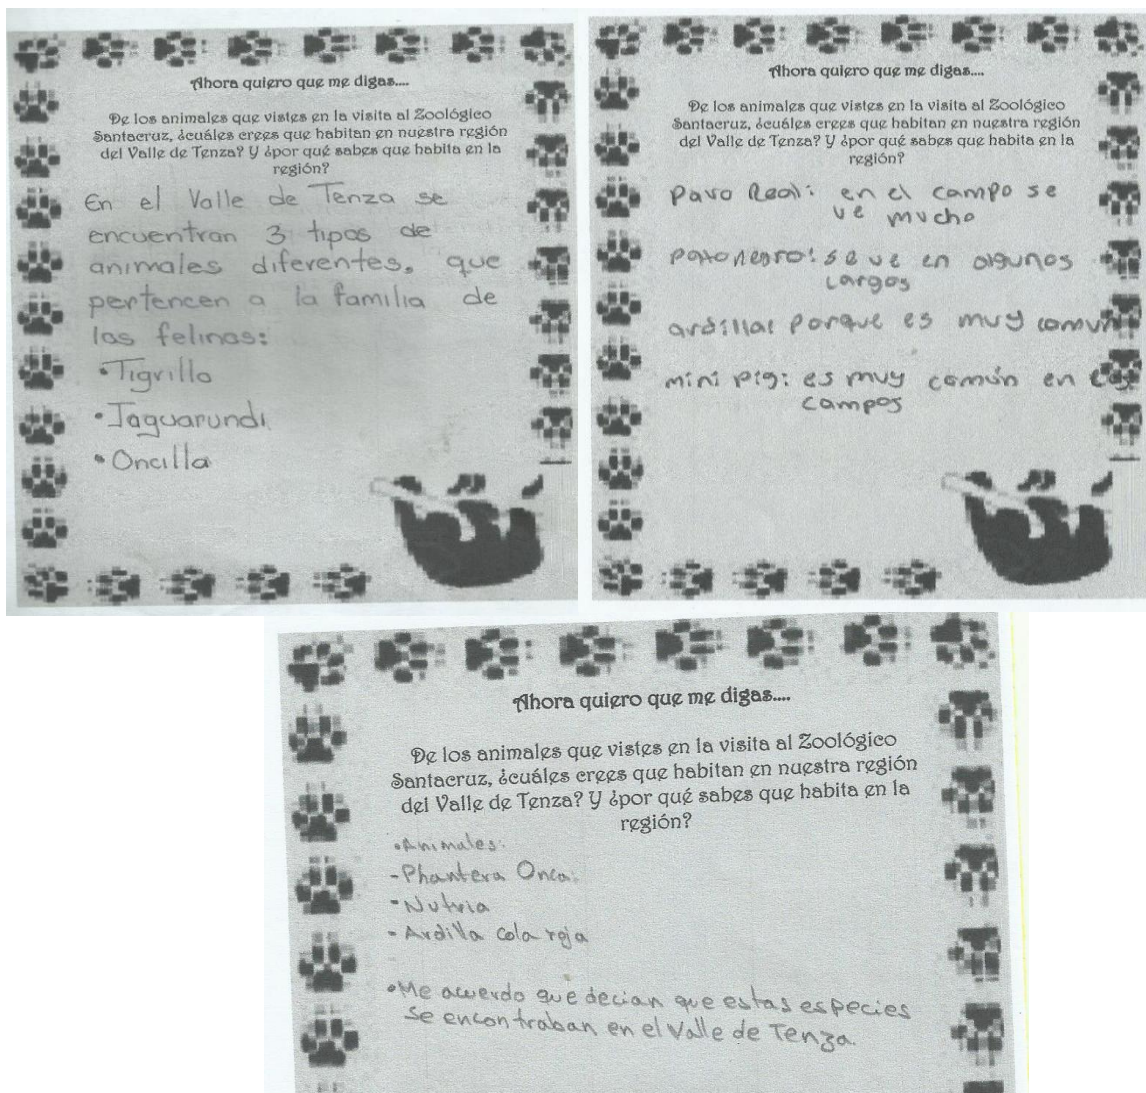 Ahora quiero que me digas....
De los animales que vistes en la visita al Zoológico
Santacruz, ¿cuáles crees que habitan en nuestra región
del Valle de Tenza? Y ¿por qué sabes que habita en la
región?
En el Valle de Tenza se
encuentran 3 tipos de
animales diferentes, que
pertencen a la familia de
los felinos:
•Tigrillo
•Jaguarundi
•Oncilla
Ahora quiero que me digas....
De los animales que vistes en la visita al Zoológico
Santacruz, ¿cuáles crees que habitan en nuestra región
del Valle de Tenza? Y ¿por qué sabes que habita en la
región?
Pavo Real: en el campo se
ve mucho
pato negro: se ve en algunos
Largos
ardillar porque es muy comun
mini pig: es muy común en los
campos
Ahora quiero que me digas....
De los animales que vistes en la visita al Zoológico
Santacruz, ¿cuáles crees que habitan en nuestra región
del Valle de Tenza? Y ¿por qué sabes que habita en la
región?
•Animales:
-Phantera Onca.
-Nutria
-Ardilla cola roja
•Me acuerdo que decian que estas especies
se encontraban en el Valle de Tenza.